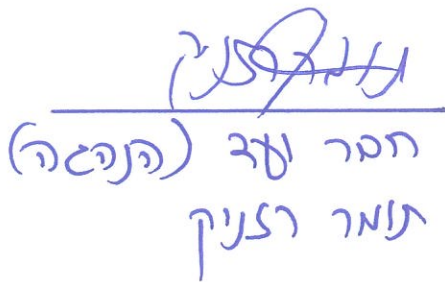 תומר רזניק
חבר ועד (הנהגה)
תומר רזניק